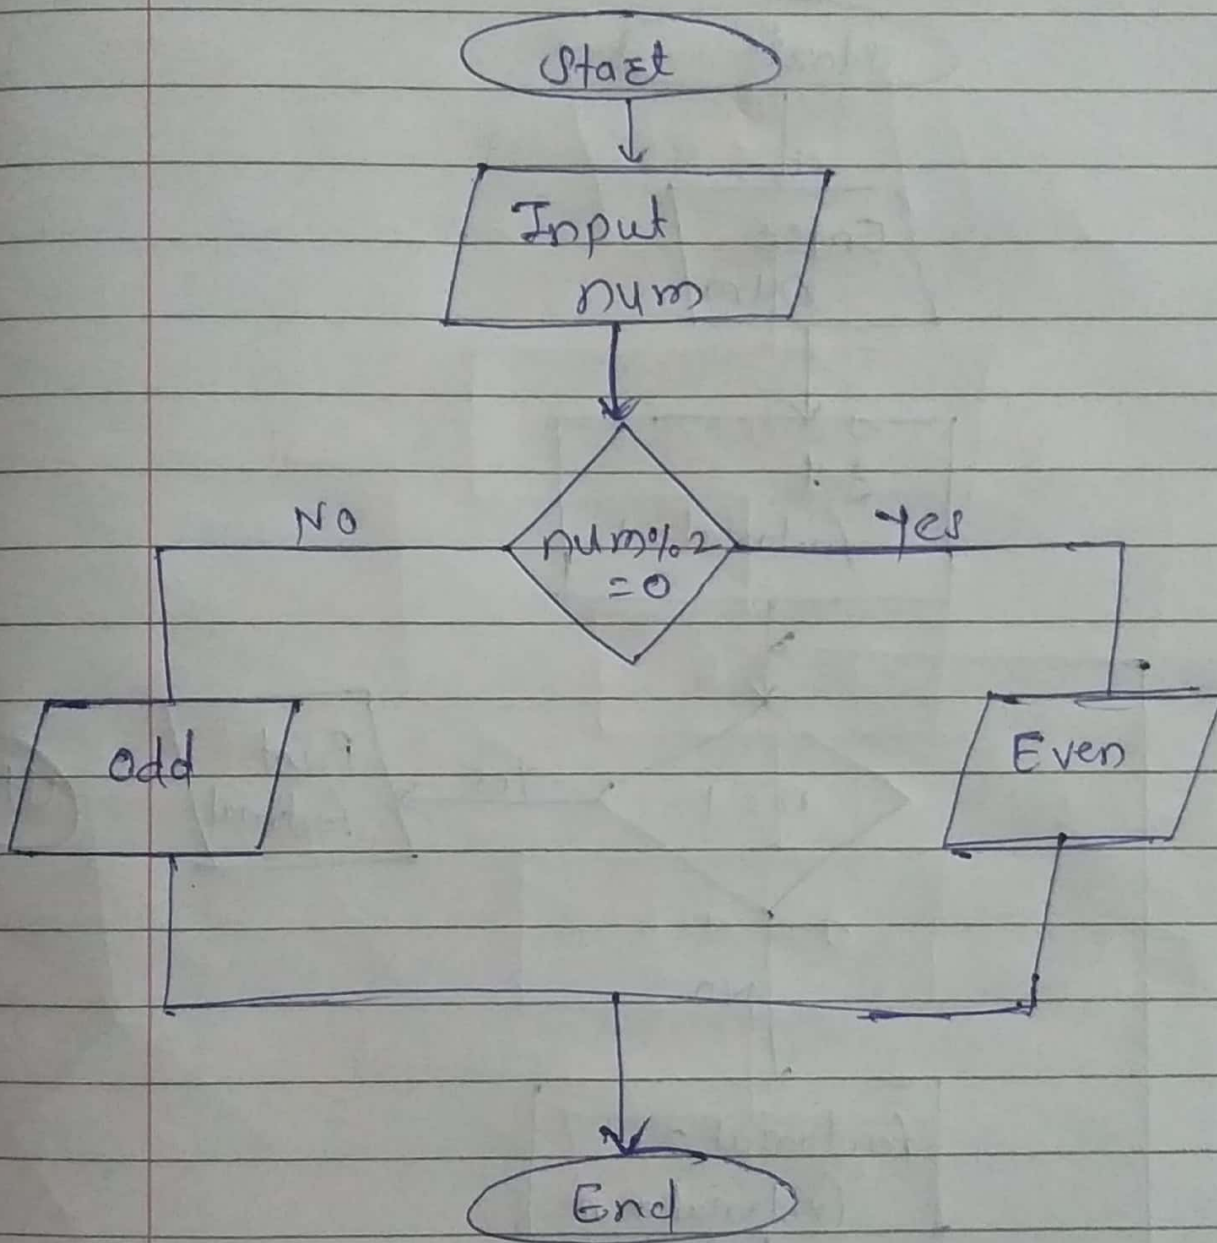 Start
Input
num
num%2
=0
No
Yes
Odd
Even
End